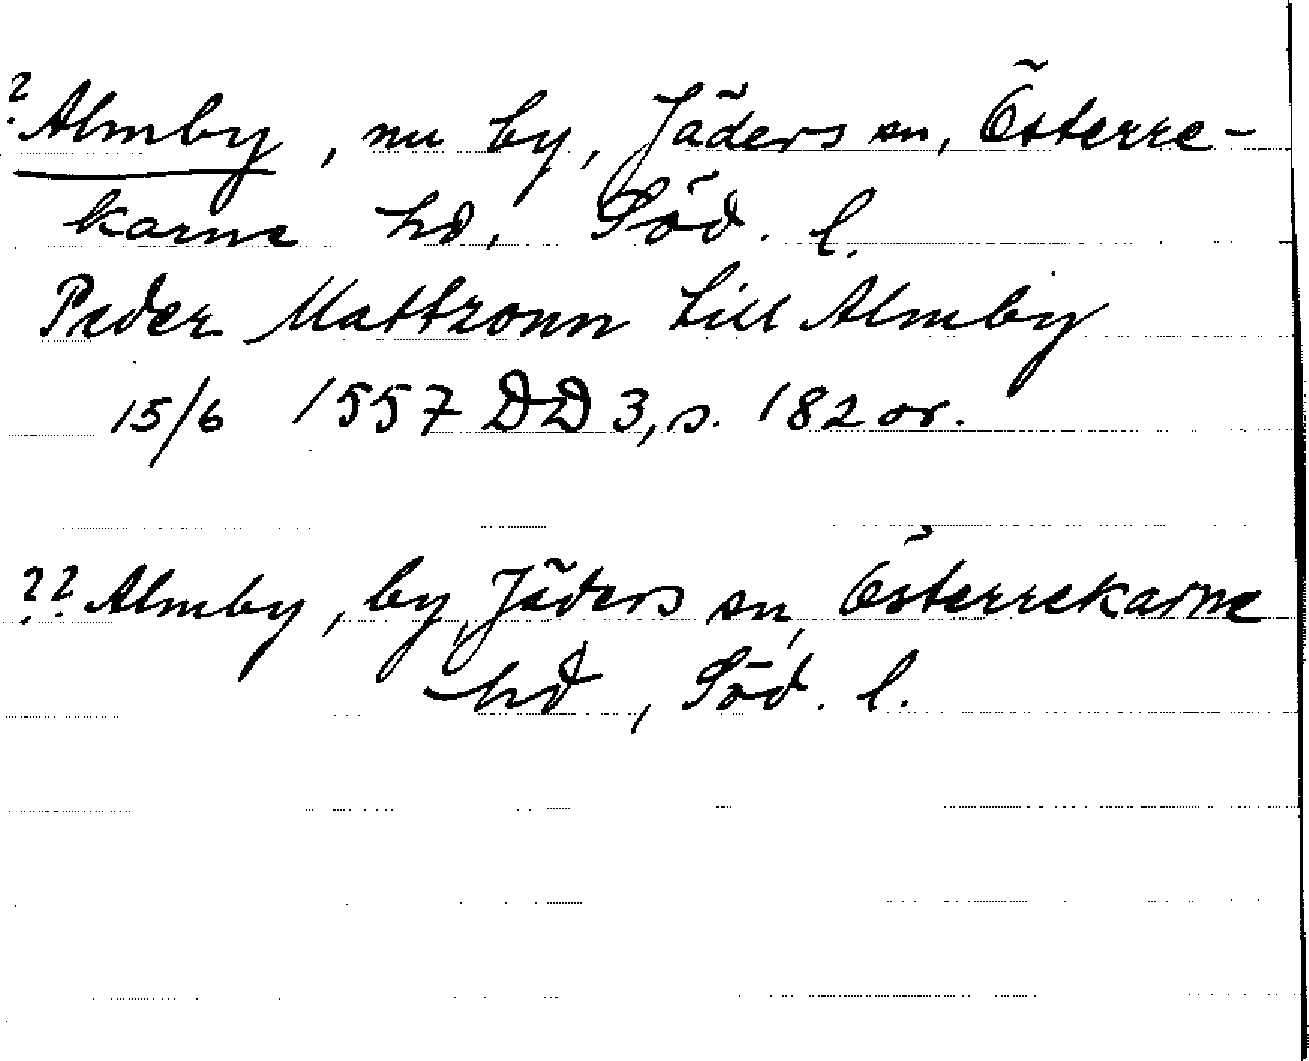 ? Almby, nu by, Jäders sn, Österre-
karne hd, Söd. l.
Peder Mattzonn till Almby
15/6 1557 DD 3, s. 182 or.
?? Almby, by, Jäders sn, Österrekarne
hd, Söd. l.